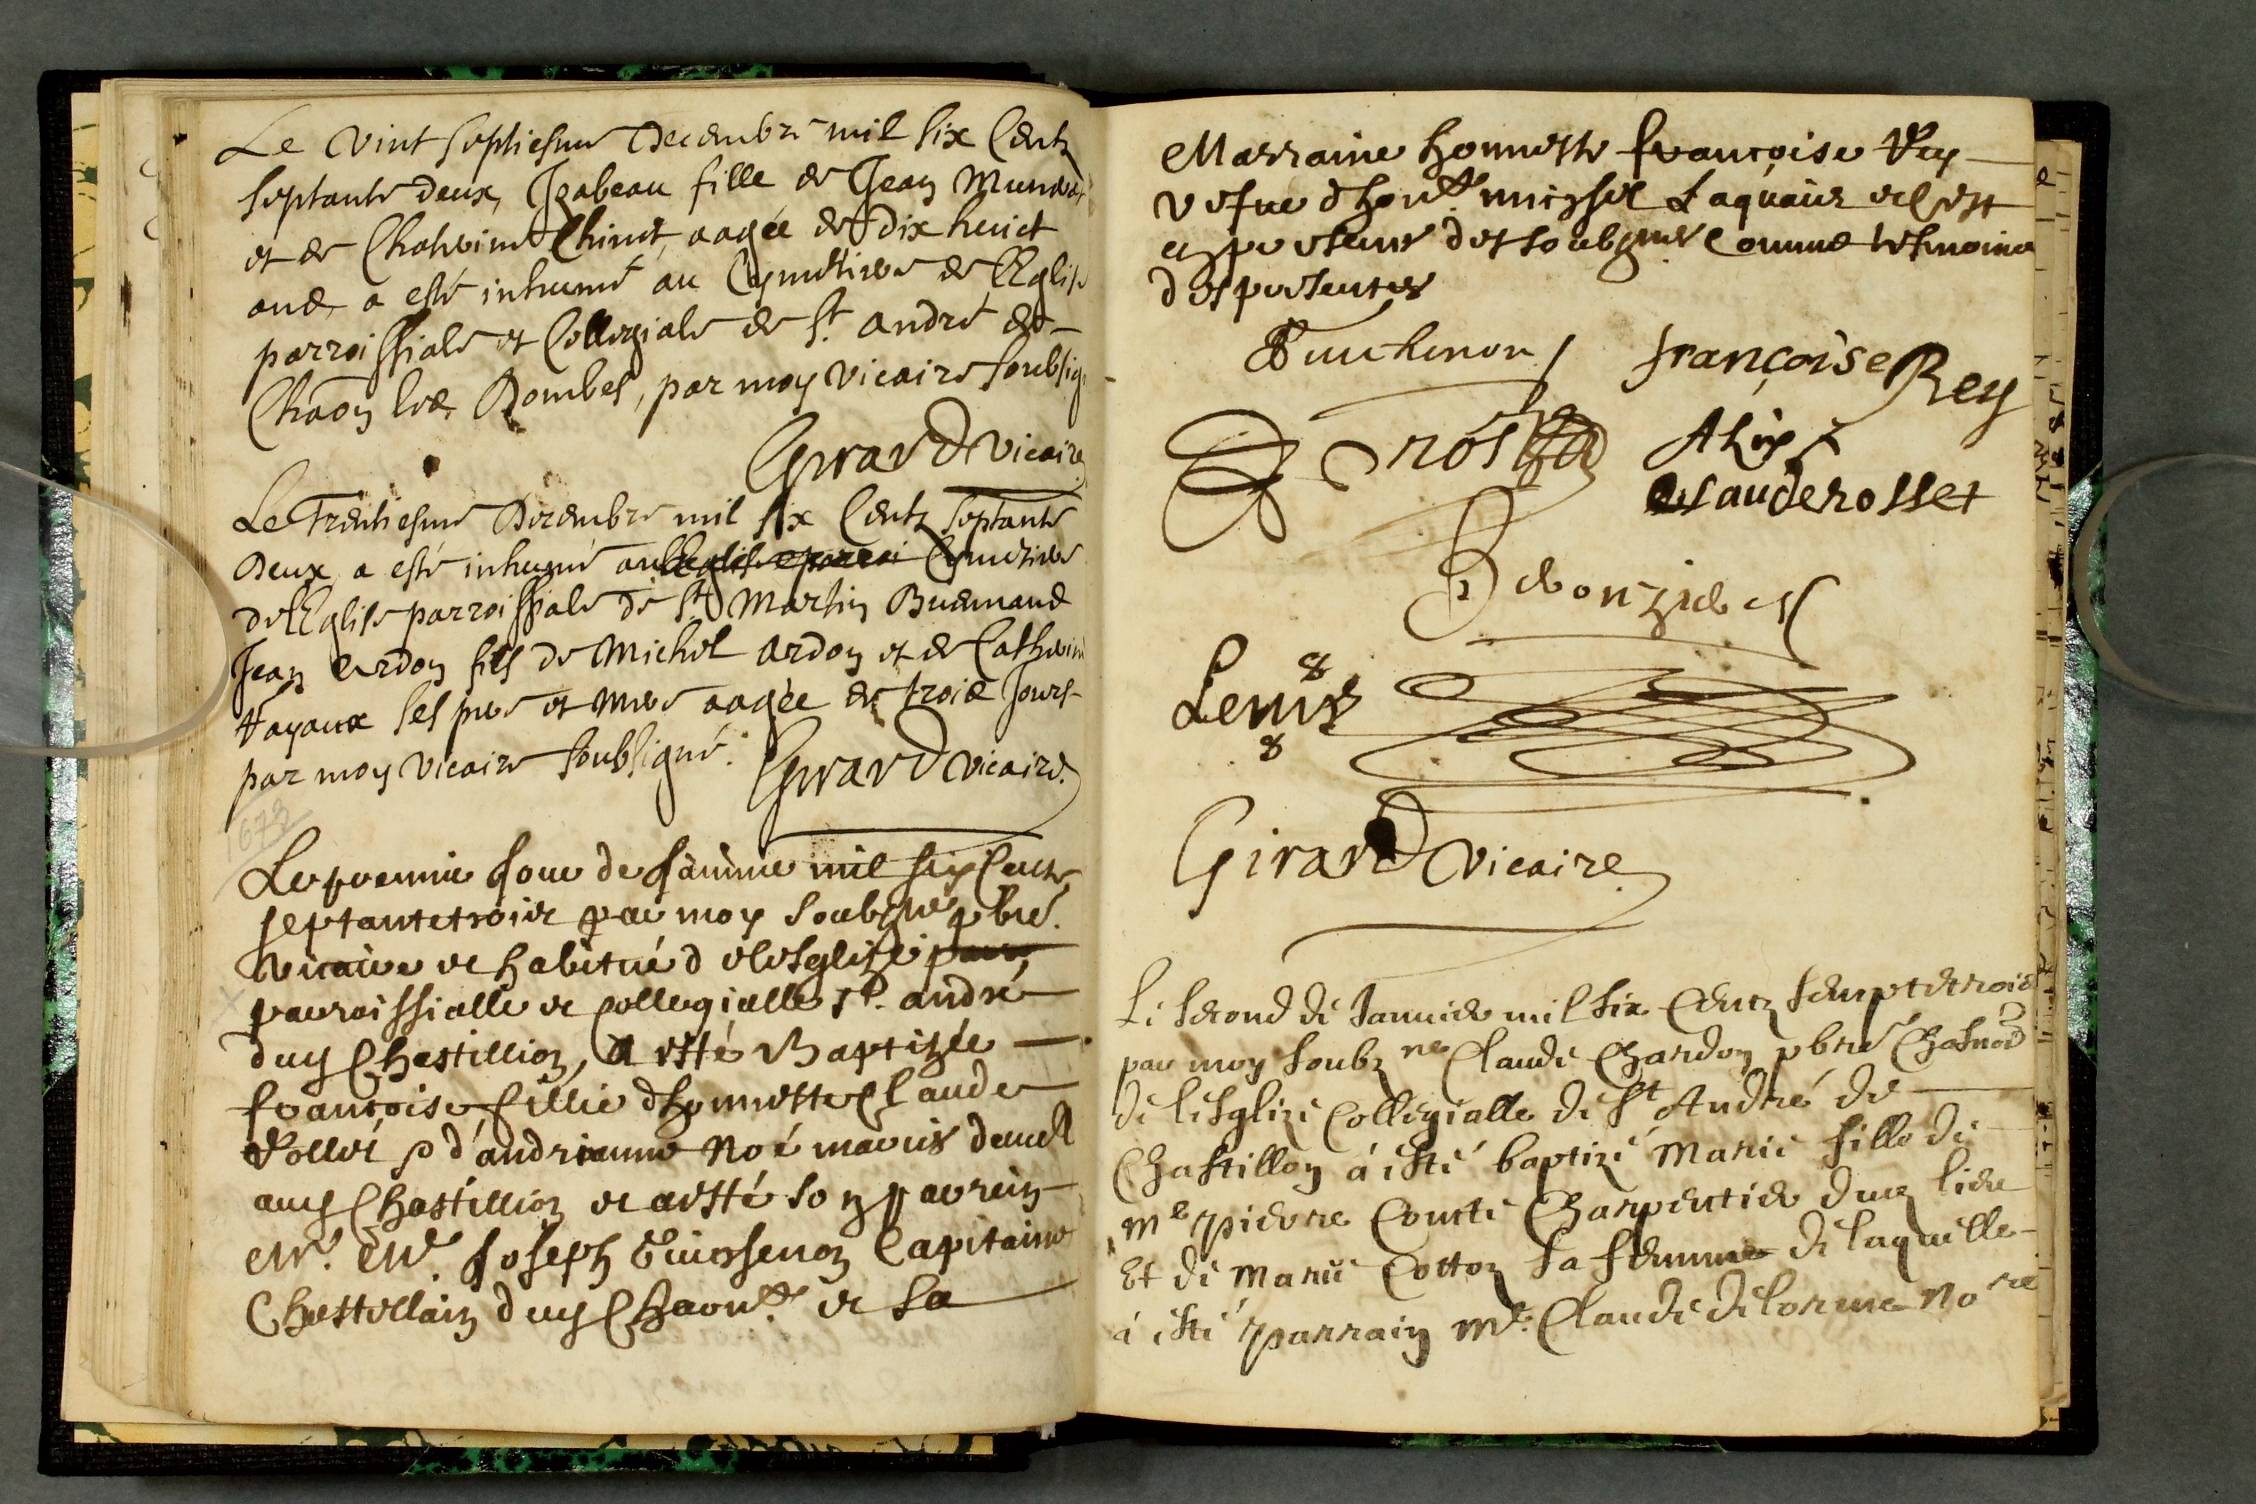 Le vint septiesme Decembre mil six Centz
septante deux, Izabeau fille de Jean
et de Chaterine Chinet, aagée de dix huict
ans, a esté inhumé au Cymetiere de l'Eglise
parroissiale et Collegiale de St. André de
Chaon les Dombes, par moy Vicaire soubsig
Girard vicaire
Le Trentiesme Decembre mil six Centz septante
Deux a esté inhumé au Cymetiere
de l'Eglise parroissiale de St Martin Buenand
Jean Ardon fils de Michel Ardon et de Catherine
Vayaux ses pere et mere aagée de trois Jours
par moy vicaire soubsigné. Girard vicaire.
1673
Le premier Jour de Janvier mil six Cents
septantetrois par moy soubzne pbre.
Vicaire et habitué de l'esglize
parroissialle et collegialle St. andré
duy Chastillion, a esté Baptizée
francoise fillie d'honneste Claude
Vollet et d'andrianne Noé mariés dem
auy Chastillion et a esté son parrein
Mr. Me. Joseph Cuichenon Capitaine
Chastellain duy Chaon et sa
Marraine honneste francoise Rey
vefue d'hon michel Laquaiz et est
en presence des soubznes Comme tesmoins
des presentes
Cuichenon françoise Rey
Alix
Claude rosset
Leuis
Girard vicaire
Le second de Janvier mil six Centz sempte trois
par moy soubz ne Claude Chardon pbre Chanoe
de l'esglize Collegialle de St André de
Chastillon á esté baptizé Marie fille de
Me pierre Conte Charpentier duy lieu
Et de Marie Cotton sa femme de laquelle
á esté parrain Me. Claude delorme No re